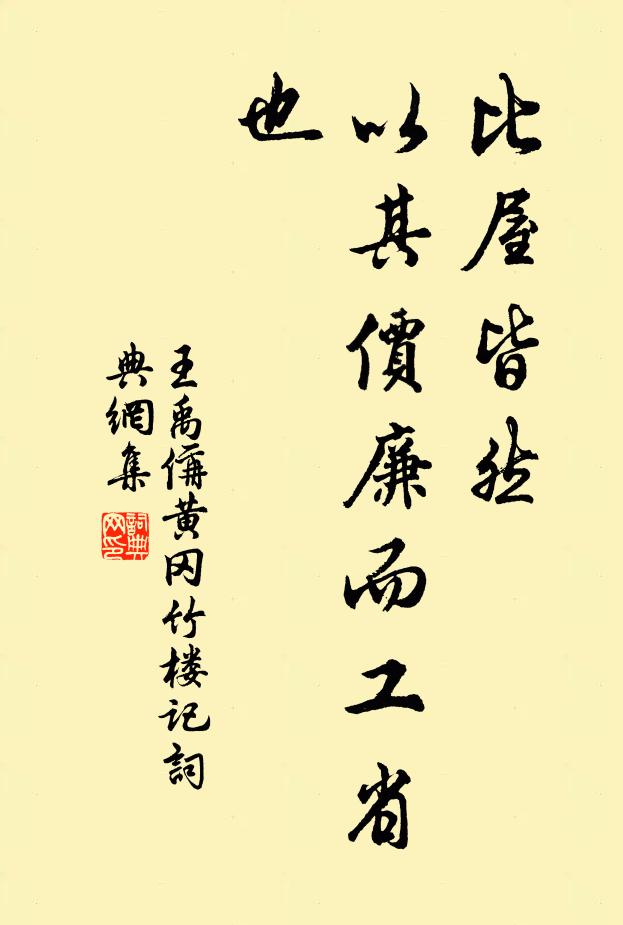 比屋皆然
以其價廉而工省
也
王禹偁黄冈竹楼记詞
典網集
詞典
网印